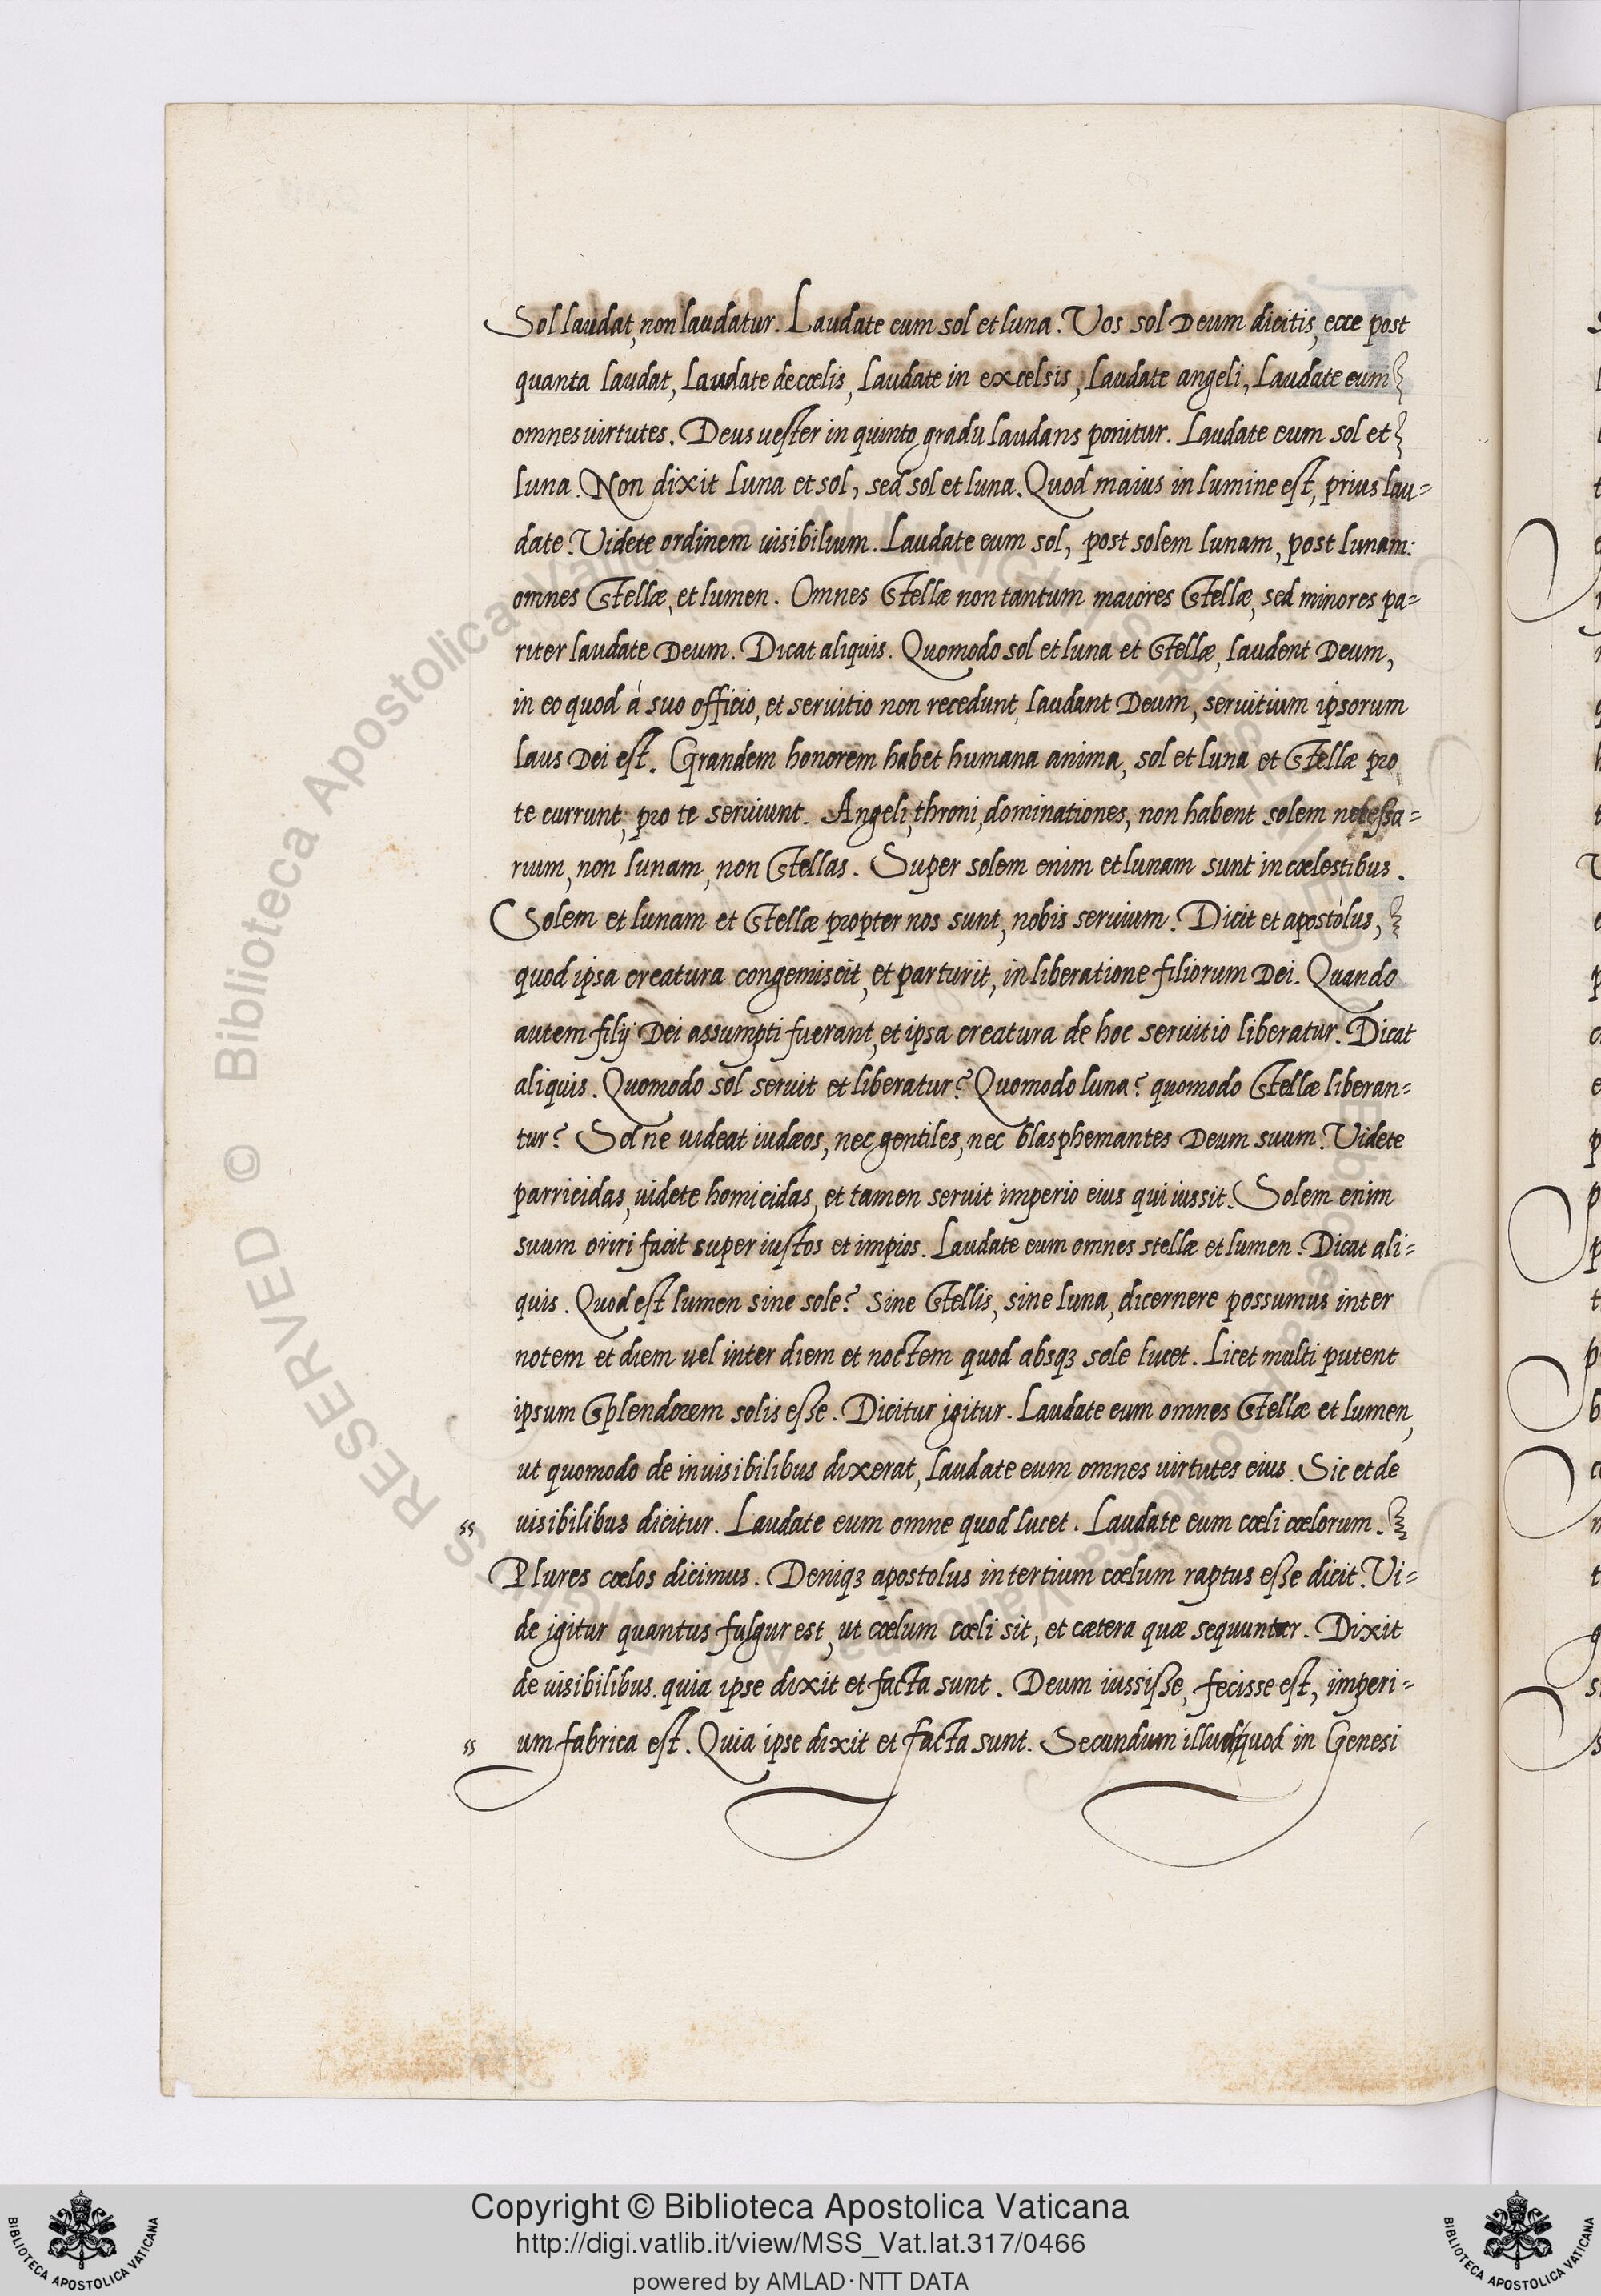 Sol laudat, non laudatur. Laudate eum sol et luna. Vos sol Deum dicitis, ecce post
quanta laudat, Laudate de cœlis, Laudate in excelsis, Laudate angeli, Laudate eum
omnes uirtutes. Deus uester in quinto gradu laudans ponitur. Laudate eum sol et
luna. Non dixit luna et sol, sed sol et luna. Quod maius in lumine est, prius lau=
date. Videte ordinem uisibilium. Laudate eum sol, post solem lunam, post lunam:
omnes Stellæ, et lumen. Omnes Stellæ non tantum maiores Stellæ, sed minores pa=
riter laudate Deum. Dicat aliquis. Quomodo sol et luna et Stellæ, laudent Deum,
in eo quod à suo officio, et seruitio non recedunt, laudant Deum, seruitium ipsorum
laus Dei est. Grandem honorem habet humana anima, sol et luna et Stellæ pro
te currunt, pro te seruiunt. Angeli, throni, dominationes, non habent solem necessa=
rium, non lunam, non Stellas. Super solem enim et lunam sunt in cœlestibus.
Solem et lunam et Stellæ propter nos sunt, nobis seruium. Dicit et apostolus,
quod ipsa creatura congemiscit, et parturit, in liberatione filiorum Dei. Quando
autem filij Dei assumpti fuerant, et ipsa creatura de hoc seruitio liberatur. Dicat
aliquis. Quomodo sol seruit et liberatur? Quomodo luna? quomodo Stellæ liberan=
tur? Sol ne uideat iudæos, nec gentiles, nec blasphemantes Deum suum. Videte
parricidas, uidete homicidas, et tamen seruit imperio eius qui iussit. Solem enim
suum oriri facit super iustos et impios. Laudate eum omnes stellæ et lumen. Dicat ali=
quis. Quod est lumen sine sole? Sine Stellis, sine luna, dicernere possumus inter
notem et diem uel inter diem et noctem quod absqꝫ sole lucet. Licet multi putent
ipsum Splendorem solis esse. Dicitur igitur. Laudate eum omnes Stellæ et lumen,
ut quomodo de inuisibilibus dixerat, Laudate eum omnes uirtutes eius. Sic et de
uisibilibus dicitur. Laudate eum omne quod lucet. Laudate eum cœli cœlorum.
Plures cœlos dicimus. Deniqꝫ apostolus in tertium cœlum raptus esse dicit. Vi=
de igitur quantus fulgur est, ut cœlum cœli sit, et cætera quæ sequuntur. Dixit
de uisibilibus. quia ipse dixit et facta sunt. Deum iussisse, fecisse est, imperi=
um fabrica est. Quia ipse dixit et facta sunt. Secundum illud quod in Genesi
Copyright © Biblioteca Apostolica Vaticana
http://digi.vatlib.it/view/MSS_Vat.lat.317/0466
powered by AMLAD·NTT DATA